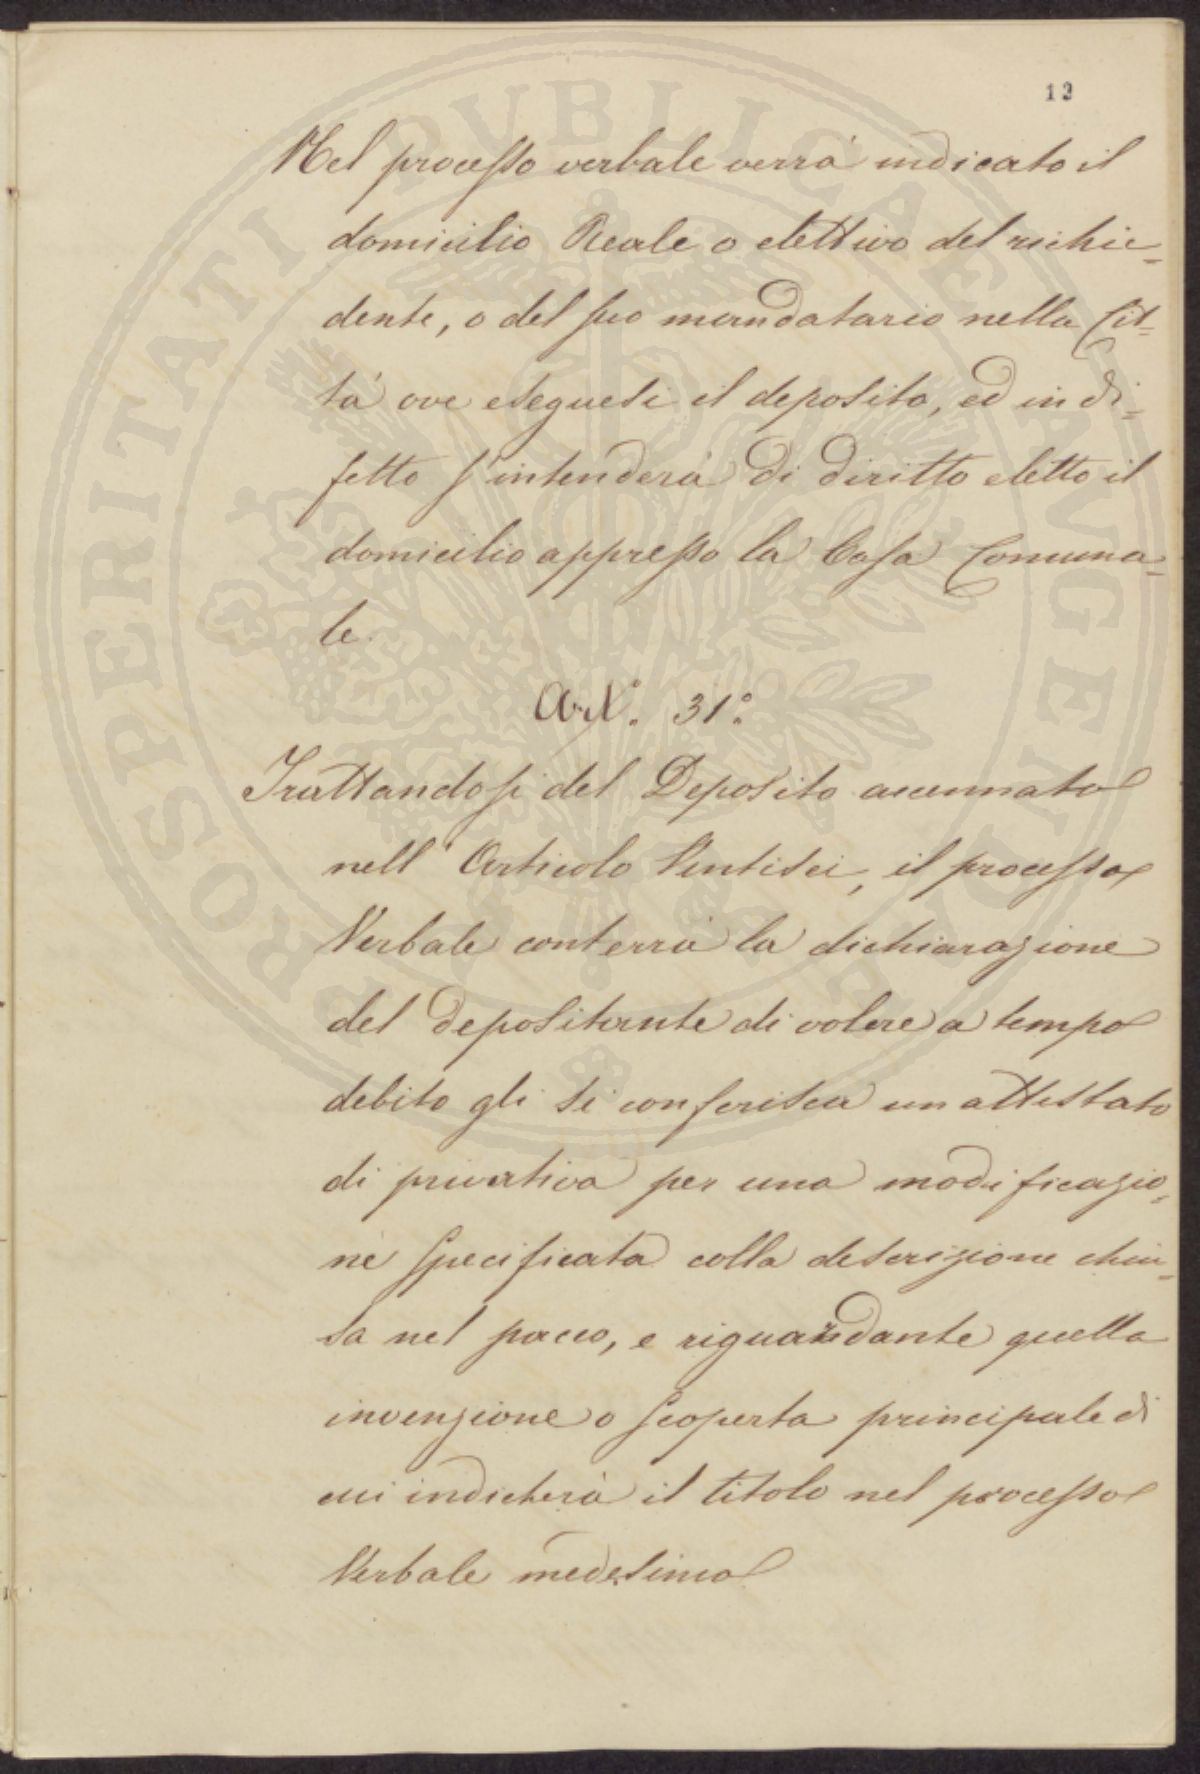 12
Nel processo verbale verrà indicato il
domicilio Reale o elettivo del richie=
dente, o del suo mandatario nella Cit=
tà ove eseguesi il deposito, ed in di=
fetto s'intenderà di diritto eletto il
domicilio appresso la Casa Comuna=
le.
Art.° 31°.
Trattandosi del Deposito accennato
nell' Articolo Ventisei, il processo
Verbale conterrà la dichiarazione
del depositante di volere a tempo
debito gli si conferisca un attestato
di privativa per una modificazio=
ne specificata colla descrizione chiu=
sa nel pacco, e riguardante quella
invenzione o scoperta principale di
cui indicherà il titolo nel processo
Verbale medesimo
PROSPERITATI PUBLICAE AUGENDAE